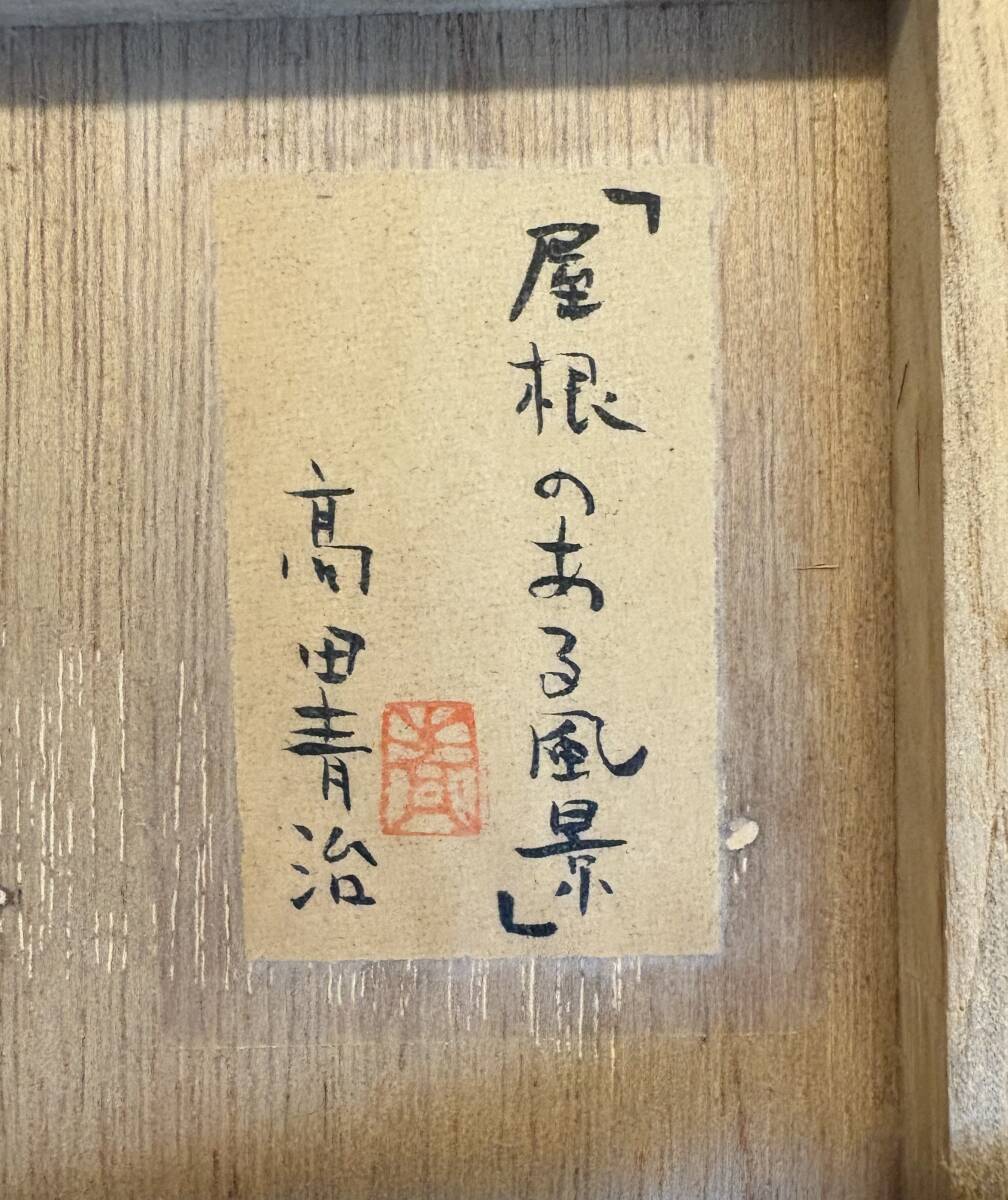 「屋根のある風景」
高田青治